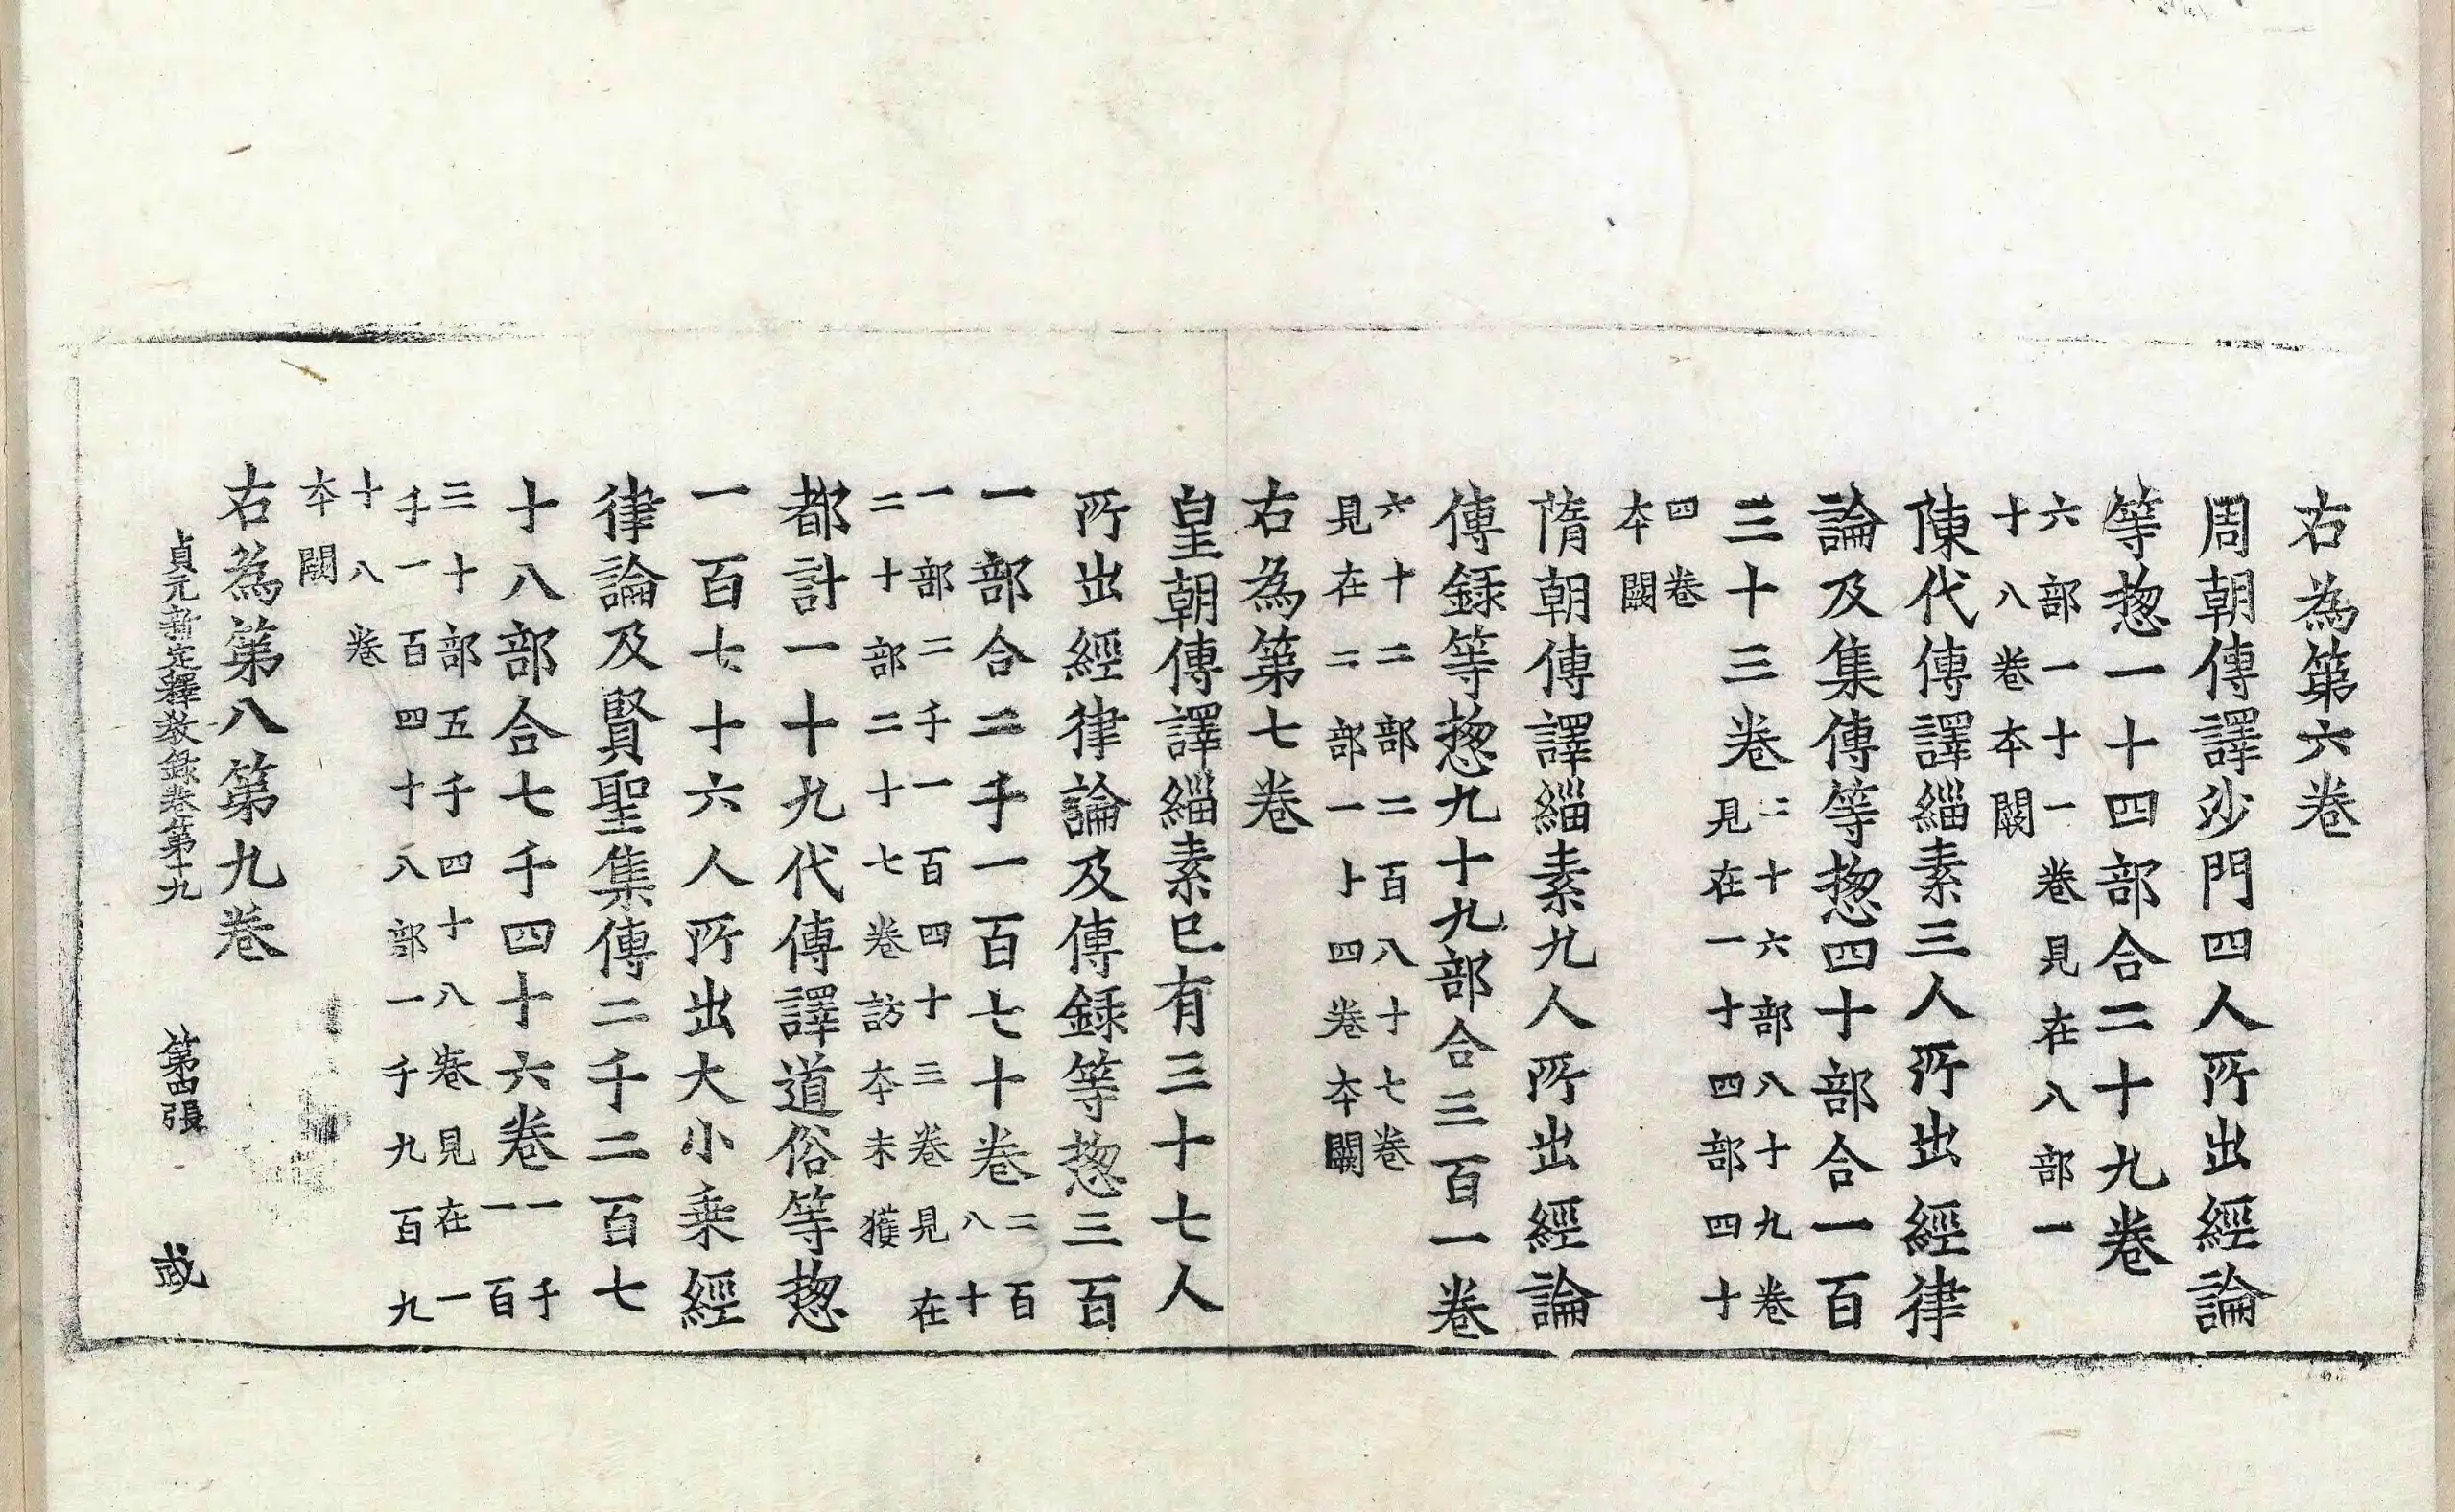 右為第六卷
周朝傳譯沙門四人所出經論
等惣一十四部合二十九卷
六部一十一卷見在八部一
十八卷本闕
陳代傳譯緇素三人所出經律
論及集傳等惣四十部合一百
三十三卷二十六部八十九卷
見在一十四部四十
四卷
本闕
隋朝傳譯緇素九人所出經論
傳録等惣九十九部合三百一卷
六十二部二百八十七卷
見在二部一十四卷本闕
右為第七卷
皇朝傳譯緇素巳有三十七人
所出經律論及傳録等惣三百
一部合二千一百七十卷二百
八十
一部二千一百四十三卷見在
二十部二十七卷訪本未獲
都計一十九代傳譯道俗等惣
一百七十六人所出大小乗經
律論及賢聖集傳二千二百七
十八部合七千四十六卷一千
一百
三十部五千四十八卷見在一
千一百四十八部一千九百九
十八卷
本闕
右為第八第九卷
貞元新定釋教録卷第十九 第四張 或